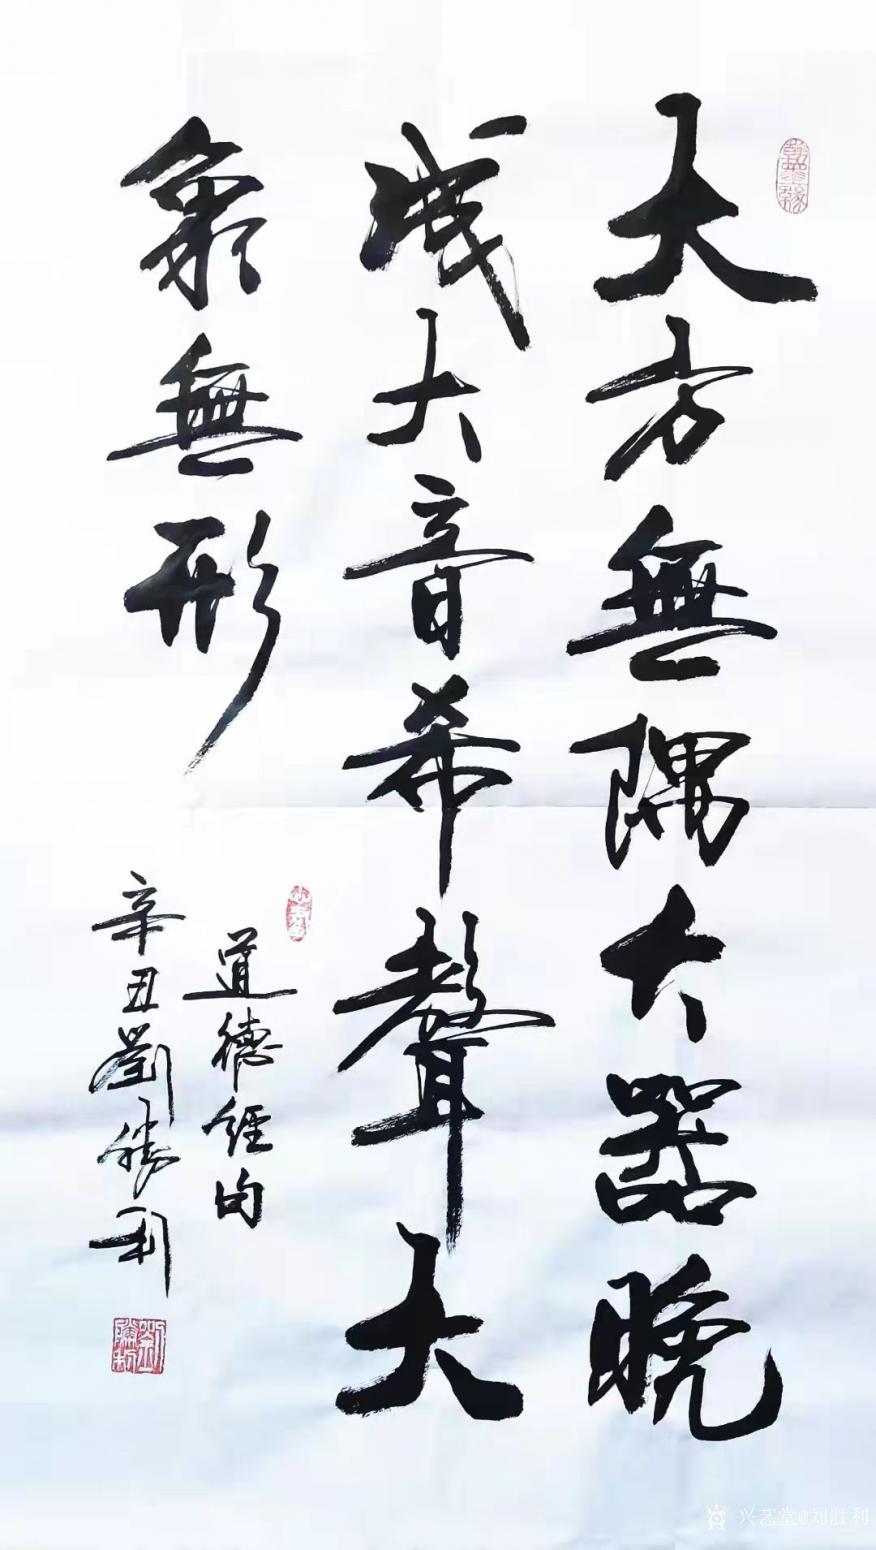 大方無隅大器晚
成大音希聲大
象無形
道德经句
辛丑劉勝利
翰墨缘
劉勝利
兴艺堂@刘胜利